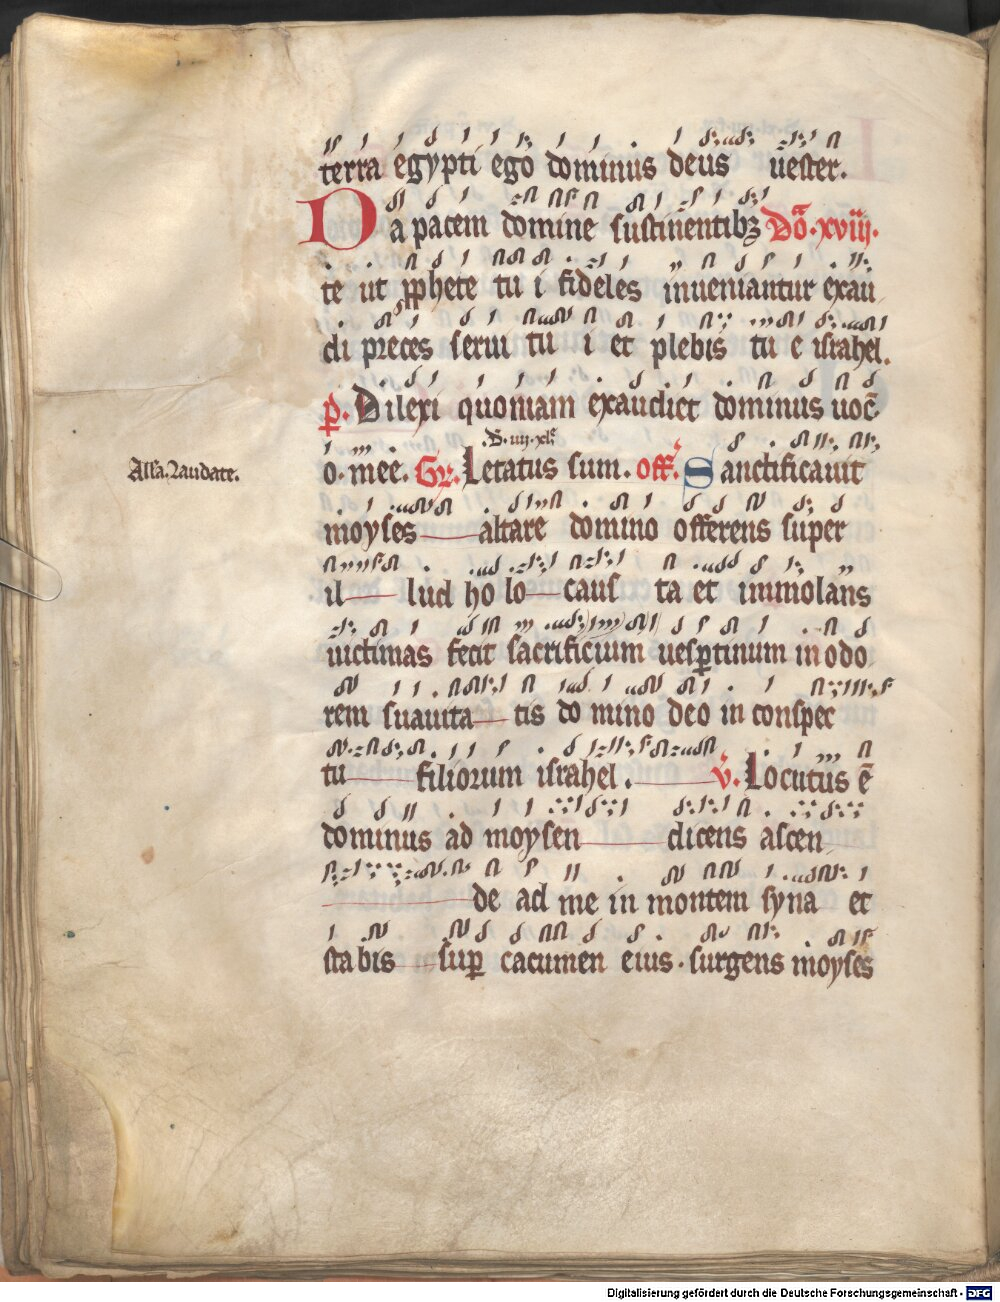 terra egypti ego dominus deus uester.
Da pacem domine sustinentibꝫ Dō·xviij·
te ut ꝓphete tu i fideles inueniantur exau
di preces serui tu i et plebis tu e israhel.
p̄. Dilexi quoniam exaudiet dominus uoc̄
D·iiij·xl͛
o·mee. Gr̄. Letatus sum. off̄. Sanctificauit
All͛a. Laudate.
moyses altare domino offerens super
il lud ho lo caus ta et immolans
uictimas fecit sacrificium uesꝑtinum in odo
rem suauita tis do mino deo in conspec
tu filiorum israhel. v̄. Locutus ē
dominus ad moysen dicens ascen
de ad me in montem syna et
sta bis suꝑ cacumen eius·surgens moyses
Digitalisierung gefördert durch die Deutsche Forschungsgemeinschaft - DFG